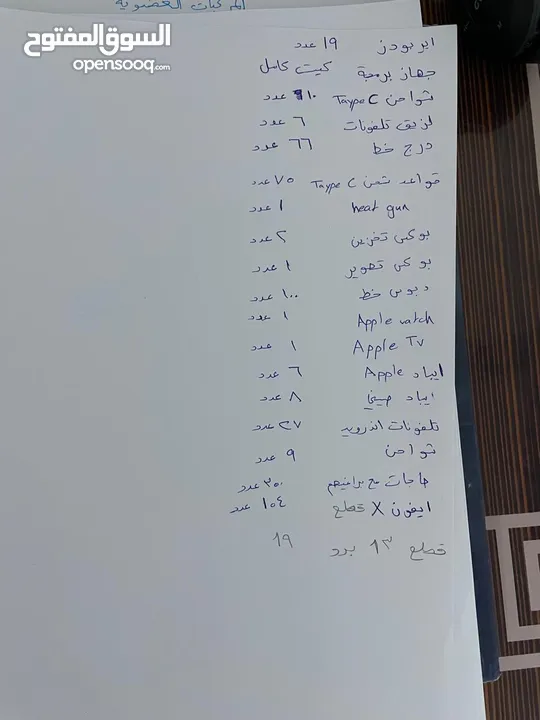 المركبات العضوية
السوق المفتوح
opensooq.com
ايربودز ١٩ عدد
جهاز برمجة كيت كامل
شواحن Taype C ١٠ عدد
لزيق تلفونات ٦ عدد
درج خط ٦٦ عدد
قواعد شحن Taype C ٧٥ عدد
heat gun ١ عدد
بوكس تخزين ٢ عدد
بوكس تصوير ١ عدد
دبوس خط ١٠٠ عدد
Apple watch ١ عدد
Apple TV ١ عدد
ايباد Apple ٦ عدد
ايباد صيني ٨ عدد
تلفونات اندرويد ٢٧ عدد
شواحن ٩ عدد
شاشات مع براغيهم ٣٥٠ عدد
ايفون X قطع ١٠٤ عدد
قطع ١٣ برد ١٩